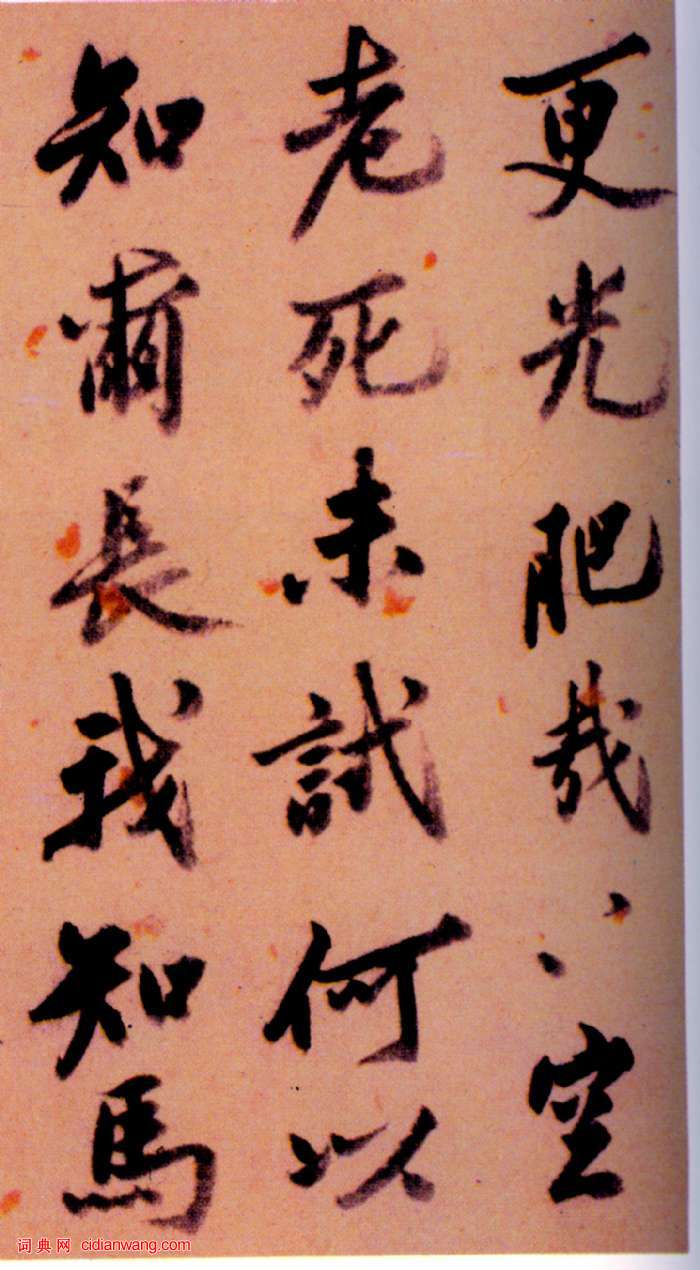 更光肥哉〻空
老死未試何以
知爾長我知馬
词典网 cidianwang.com